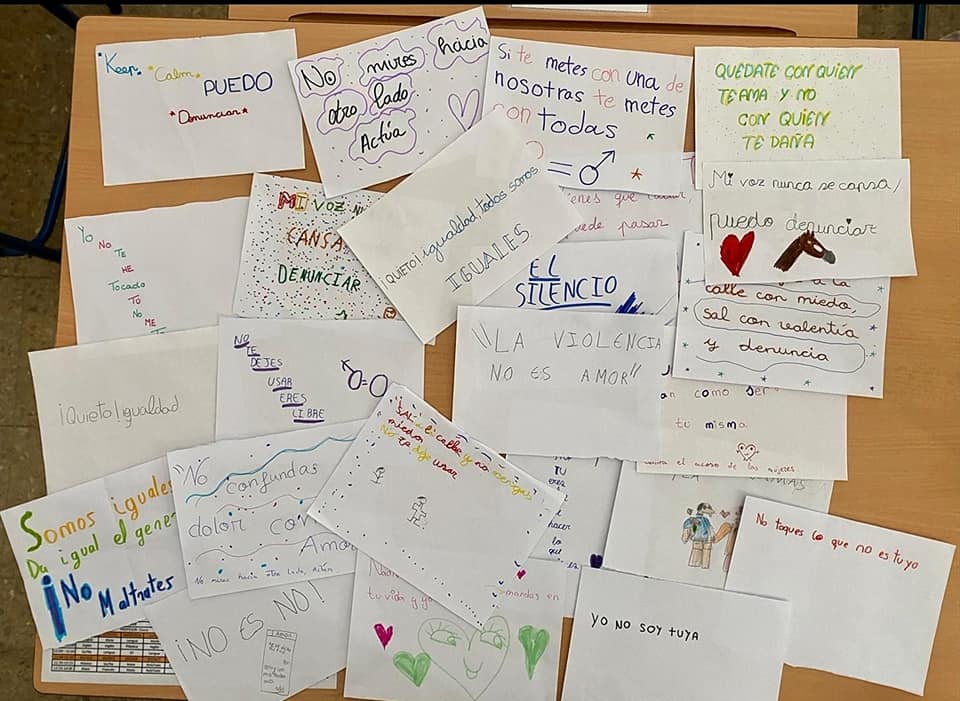 Keep
Calm
PUEDO
*Denunciar*
No
mires
hacia
otro lado
Actúa
Si te metes con una de
nosotras te metes
con todas
= ♂
QUÉDATE CON QUIEN
TE AMA Y NO
CON QUIEN
TE DAÑA
Mi voz nunca se cansa,
puedo denunciar
Yo
NO
TE
HE
Tocado
TÓ
No
ME
MI VOZ NU
CANSA
DENUNCIAR
¡QUIETO! igualdad, todos somos
IGUALES
que
puede pasar
EL
SILENCIO
calle con miedo,
sal con valentía
y denuncia
¡Quieto! igualdad
NO
TE
DEJES
USAR
ERES
LIBRE
"LA VIOLENCIA
NO ES AMOR"
como ser
tu misma
el acoso de las mujeres
Somos iguales
Da igual el gener
¡No Maltrates
"No
confundas
dolor con
Amor
No mires hacia otro lado, Actúa
¡SAL a la calle y no tengas
miedo
No te deje usar
TU
eres
hacer
lo
que
No toques lo que no es tuyo
¡NO ES NO!
tu vida y yo
mandas en
YO NO SOY TUYA